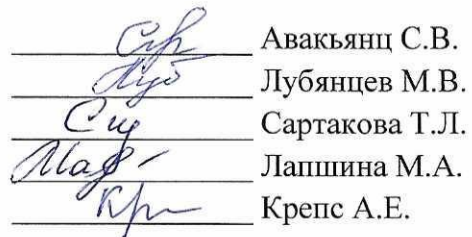 Авакьянц С.В.
Лубянцев М.В.
Сартакова Т.Л.
Лапшина М.А.
Крепс А.Е.